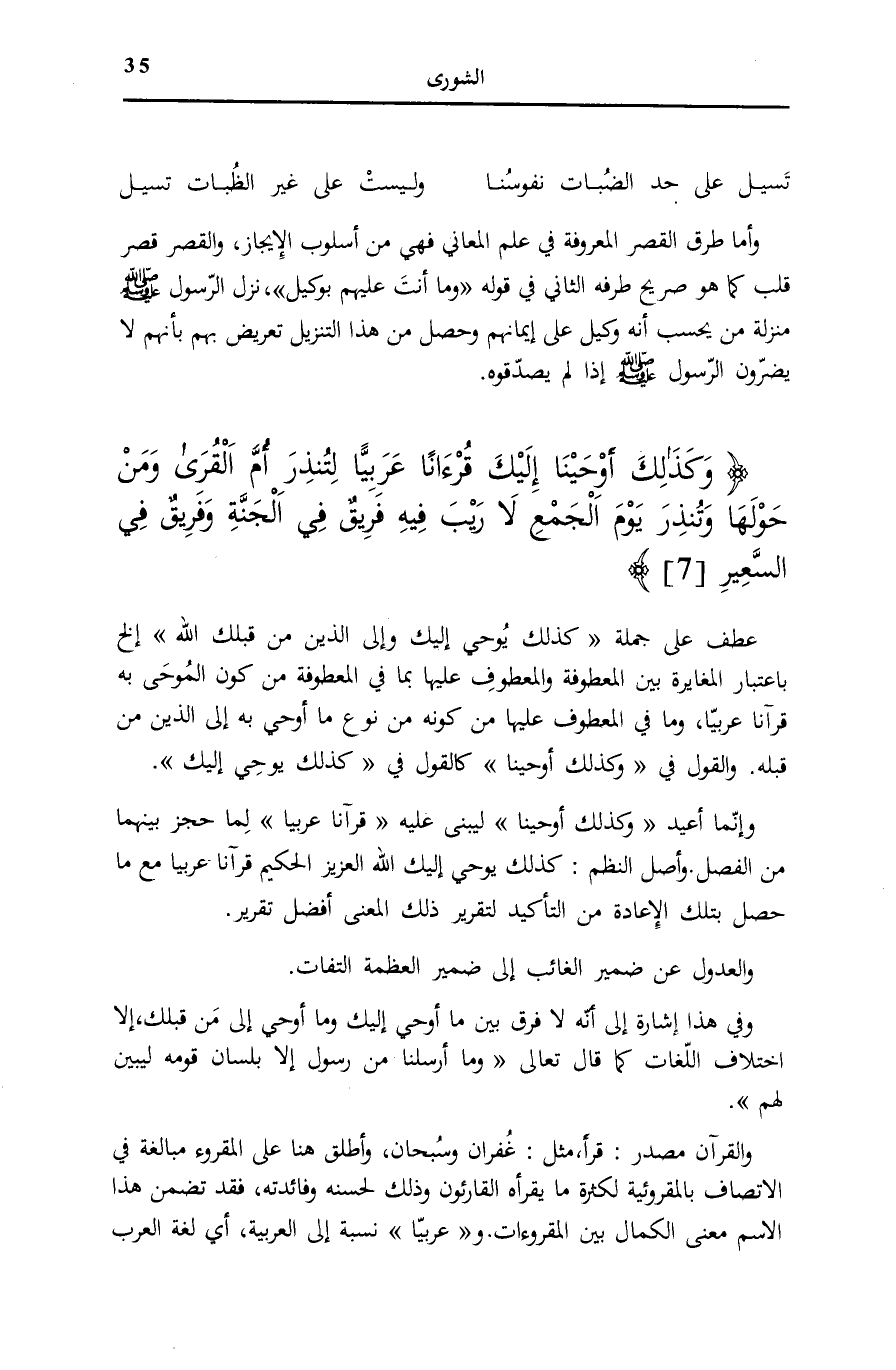 35
الشورى
تَسيـل على حد الضُبـات نفوسُنـا ولـيستْ على غير الظُبـات تسيـل
وأما طرق القصر المعروفة في علم المعاني فهي من أسلوب الإيجاز، والقصر قصر
قلب كما هو صريح طرفه الثاني في قوله «وما أنتَ عليهم بوكيل»، نزل الرّسول ﷺ
منزلة من يحسب أنه وكيل على إيمانهم وحصل من هذا التنزيل تعريض بهم بأنهم لا
يضرّون الرّسول ﷺ إذا لم يصدّقوه.
﴿ وَكَذَٰلِكَ أَوْحَيْنَا إِلَيْكَ قُرْءَانًا عَرَبِيًّا لِتُنذِرَ أُمَّ اَلْقُرَىٰ وَمَنْ
حَوْلَهَا وَتُنذِرَ يَوْمَ اَلْجَمْعِ لَا رَيْبَ فِيهِ فَرِيقٌ فِي اَلْجَنَّةِ وَفَرِيقٌ فِي
السَّعِيرِ [7] ﴾
عطف على جملة « كذلك يُوحي إليك وإلى الذين من قبلك الله » إلخ
باعتبار المغايرة بين المعطوفة والمعطوفِ عليها بما في المعطوفة من كون المُوحَى به
قرآنا عربيّا، وما في المعطوف عليها من كونه من نوع ما أوحي به إلى الذين من
قبله. والقول في « وكذلك أوحينا » كالقول في « كذلك يوحِي إليك ».
وإنّما أعيد « وكذلك أوحينا » ليبنى عليه « قرآنا عربيا » لِما حجز بينهما
من الفصل.وأصل النظم : كذلك يوحي إليك الله العزيز الحكيم قرآنا عربيا مع ما
حصل بتلك الإعادة من التأكيد لتقرير ذلك المعنى أفضل تقرير.
والعدول عن ضمير الغائب إلى ضمير العظمة التفات.
وفي هذا إشارة إلى أنّه لا فرق بين ما أوحي إليك وما أوحي إلى مَن قبلك،إلا
اختلاف اللّغات كما قال تعالى « وما أرسلنا من رسول إلا بلسان قومه ليبين
لهم ».
والقرآن مصدر : قرأ،مثل : غُفران وسُبحان، وأطلق هنا على المقروء مبالغة في
الاتصاف بالمقروئية لكثرة ما يقرأه القارئون وذلك لحسنه وفائدته، فقد تضمن هذا
الاسم معنى الكمال بين المقروءات.و« عربيّا » نسبة إلى العربية، أي لغة العرب